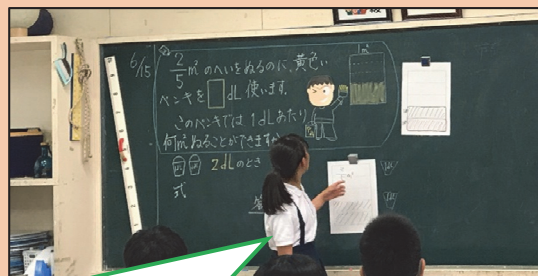 6/15
2/5 m² のへいをぬるのに、黄色い
ペンキを□dL使います。
このペンキでは1dLあたり
何m²ぬることができますか
2dLのとき
式
答
1m²